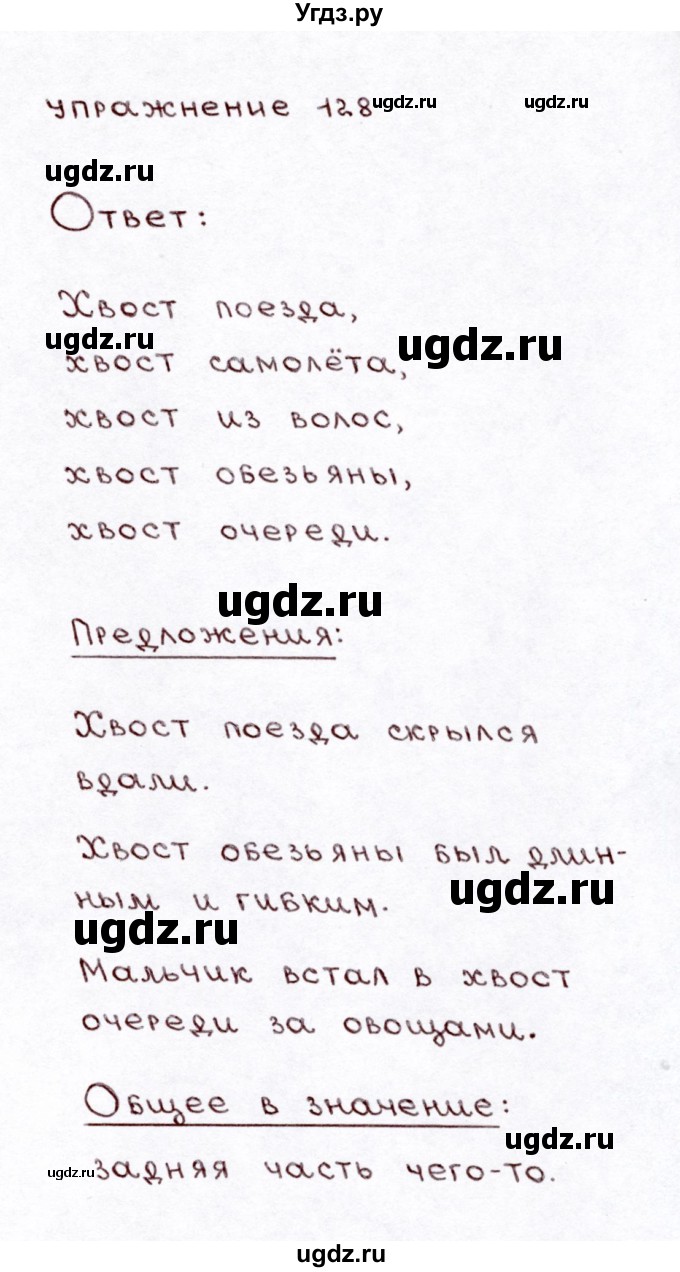 Угдз.ру
упражнение 128 ugdz.ru ugdz.ru
ugdz.ru
Ответ:
Хвост поезда,
ugdz.ru ugdz.ru
хвост самолёта,
хвост из волос,
хвост обезьяны,
хвост очереди.
ugdz.ru
Предложения:
Хвост поезда скрылся
вдали.
Хвост обезьяны был длин-
ugdz.ru
ным и гибким.
ugdz.ru
Мальчик встал в хвост
очереди за овощами.
Общее в значение:
ugdz.ru
ugdz.ru задняя часть чего-то.
ugdz.ru